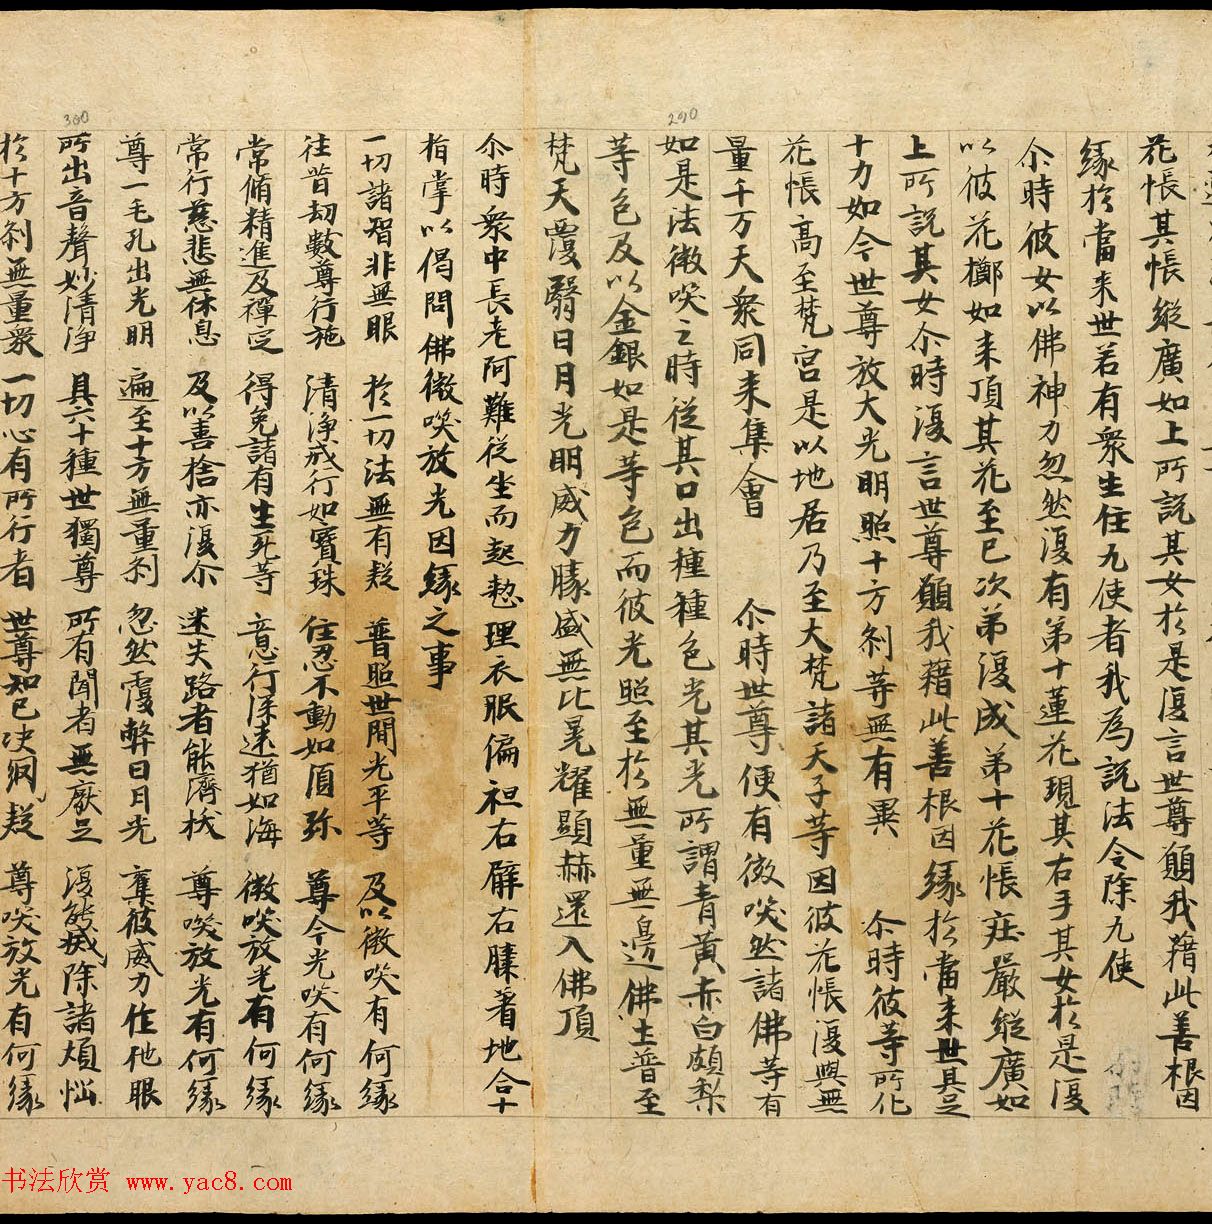 花帳其帳縱廣如上所說其女於是復言世尊願我藉此善根因
緣於當来世若有衆生住九使者我為說法令除九使
尒時彼女以佛神力忽然復有弟十蓮花現其右手其女於是復
以彼花擲如来頂其花至已次弟復成弟十花帳莊嚴縱廣如
上所說其女尒時復言世尊願我藉此善根因緣於當来世具足
十力如今世尊放大光明照十方刹等無有異 尒時彼等所化
花帳高至梵宮是以地居乃至大梵諸天子等因彼花帳復與無
量千万天衆同来集會 尒時世尊便有微咲然諸佛等有
如是法微咲之時從其口出種種色光其光所謂青黃赤白頗梨
等色及以金銀如是等色而彼光照至於無量無邊佛土普至
梵天覆翳日月光明威力勝盛無比晃耀顯赫還入佛頂
尒時衆中長老阿難從坐而起整理衣服偏袒右臂右膝著地合十
指掌以偈問佛微咲放光因緣之事
一切諸智非無眼 於一切法無有疑 普照世間光平等 及以微咲有何緣
往昔劫數尊行施 清淨戒行如寶珠 住忍不動如須弥 尊今光咲有何緣
常脩精進及禪定 得免諸有生死等 意行深遠猶如海 微咲放光有何緣
常行慈悲無休息 及以善捨亦復尒 迷失路者能濟拔 尊咲放光有何緣
尊一毛孔出光明 遍至十方無量刹 忽然覆弊日月光 奪彼威力作他眼
所出音聲妙清淨 具六十種世獨尊 所有聞者無厭足 復能滅除諸煩惱
於十方刹無量衆 一切心有所行者 世尊知已决網疑 尊咲放光有何緣
290
300
书法欣赏 www.yac8.com